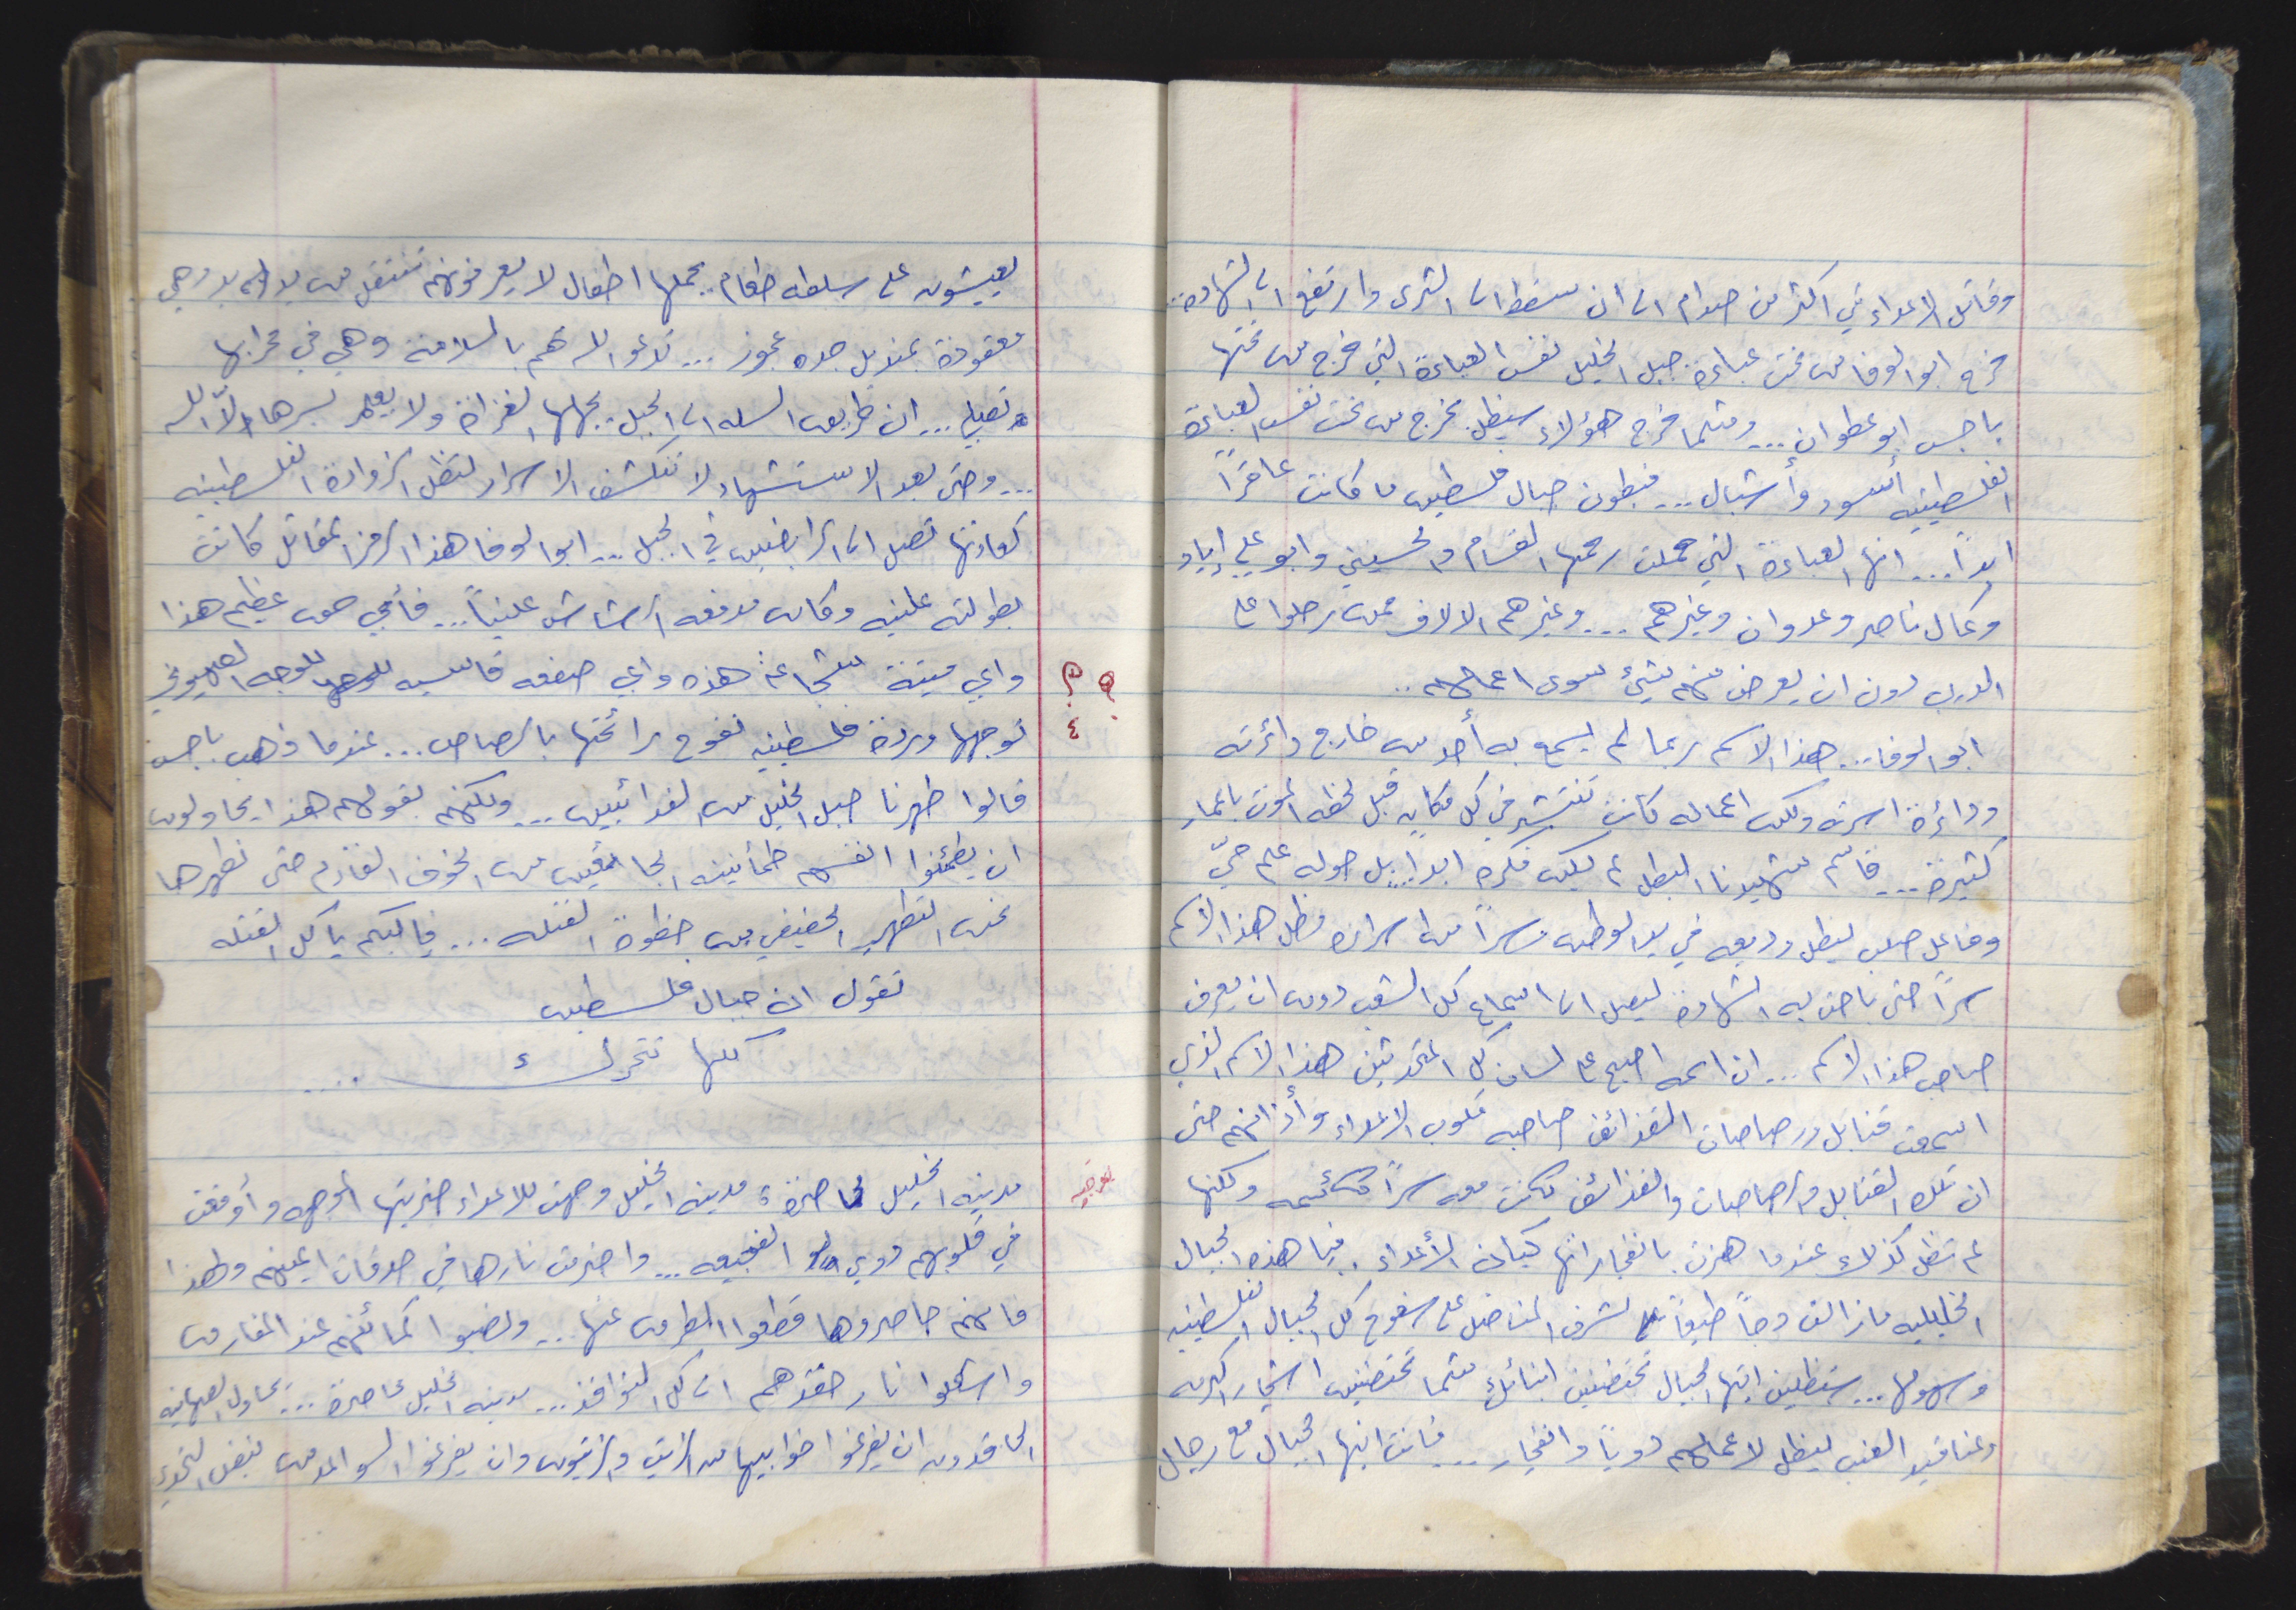 وقاتل الاعداء في اكثر من صدام الى ان سقط الى الثرى وارتفع الى الشهادة..
خرج ابو الوفا من تحت عباءة جبل الخليل نفس العباءة التي خرج من تحتها
باجس ابو عطوان... ومثلما خرج هؤلاء سيظل يخرج من تحت نفس العباءة
الفلسطينيه أسود وأشبال... فبطون جبال فلسطين ما كانت عاقراً
ابداً... انها العباءة التي حملت رحمها القسام والحسيني وابو علي إياد
وكمال ناصر وعدوان وغيرهم... وغيرهم الالاف ممن رحلوا على
الدرب دون ان يعرض منهم شيئ سوى اعمالهم..
ابو الوفا... هذا الاسم ربما لم يسمع به أحد من خارج دائرته
ودائرة اسرته ولكن اعماله كانت تنتشر في كل مكان قبل لحظه الموت باعمار
كثيرة... فاسم شهيدنا البطل لم يكن نكره ابدا.. بل حوله علم حيّ
وفاعل صلب ليظل وديعه في يد الوطن سراً من اسراره فظل هذا الاسم
سراً حتى باحت به الشهادة ليصل الى اسماع كل الشعب دون ان يعرف
صاحب هذا الاسم... ان اسمه اصبح على لسان كل المتحدثين هذا الاسم الذي
اسمعت قنابل ورصاصات القذائف صاحبه قلوب الاعداء وأذانهم حتى
ان تلك القنابل والرصاصات والقذائف كانت معه سراً كأسمه ولكنها
لم تظل كذلك عندما هزت بانفجاراتها كيان الأعداء. فيا هذه الجبال
الخليليه مازالت دماً طيوباً لشرف المناضل على سفوح كل الجبال الفلسطينيه
وسهولها... ستظلين ايتها الجبال تحتضنين ابنائك مثلما تحتضنين اشجار الكرمه
وعناقيد العنب ليظل لاعمالهم دوياً وانفجار... فانت ايتها الجبال مع رجال
يعيشون على سلطه طعام يحملها اطفال لا يعرفونهم تنتقل من يد الى يد وهي
معقودة بمنديل جده عجوز... تدعو الله لهم بالسلامة وهي في محرابها
تصلي... ان طريق السله الى الجبل يجهلها الغزاة ولا يعلم بسرها الاّ الله
... وحتى بعد الاستشهاد لا تنكشف الاسرار لتظل الزوادة الفلسطينيه
كعادتها تصل الى الرابضين في الجبل... ابو الوفا هذا الرمز المقاتل كانت
بطولته علنيه وكان مدفعه الرشاش علنياً... فأي صمت عظيم هذا
واي ميتة شجاعة هذه واي صفعه قاسيه للوجه الصهيوني
توجهها وردة فلسطينيه تفوح رائحتها بالرصاص... عندما ذهب باجس
قالوا طهرنا جبل الخليل من الفدائيين... ولكنهم بقولهم هذا يحاولون
ان يطمئنوا انفسهم طمأنينه الجائعين من الخوف القادم حتى نطهرها
نحن التطهير الحقيقي من خطوة القتله... فيا لكم يا كل القتله
نقول ان جبال فلسطين
كلها تتحرك....
؟ ؟
٤
مدينه الخليل محاصرة: مدينه الخليل وجهت للاعداء ضربتها الموجهه وأوقعت
في قلوبهم دوي الفجيعه... واضرمت نارها في حدقات اعينهم ولهذا
فانهم حاصروها قطعوا الطرق عنها... ونصبوا كمائنهم عند المفارق
واشعلوا نار حقدهم الى كل النوافذ... مدينه الخليل محاصرة... يحاول الصهاينه
الحاقدون ان يفرغوا خوابيها من الزيت والزيتون وان يفرغوا السواعد من نبض التحدي